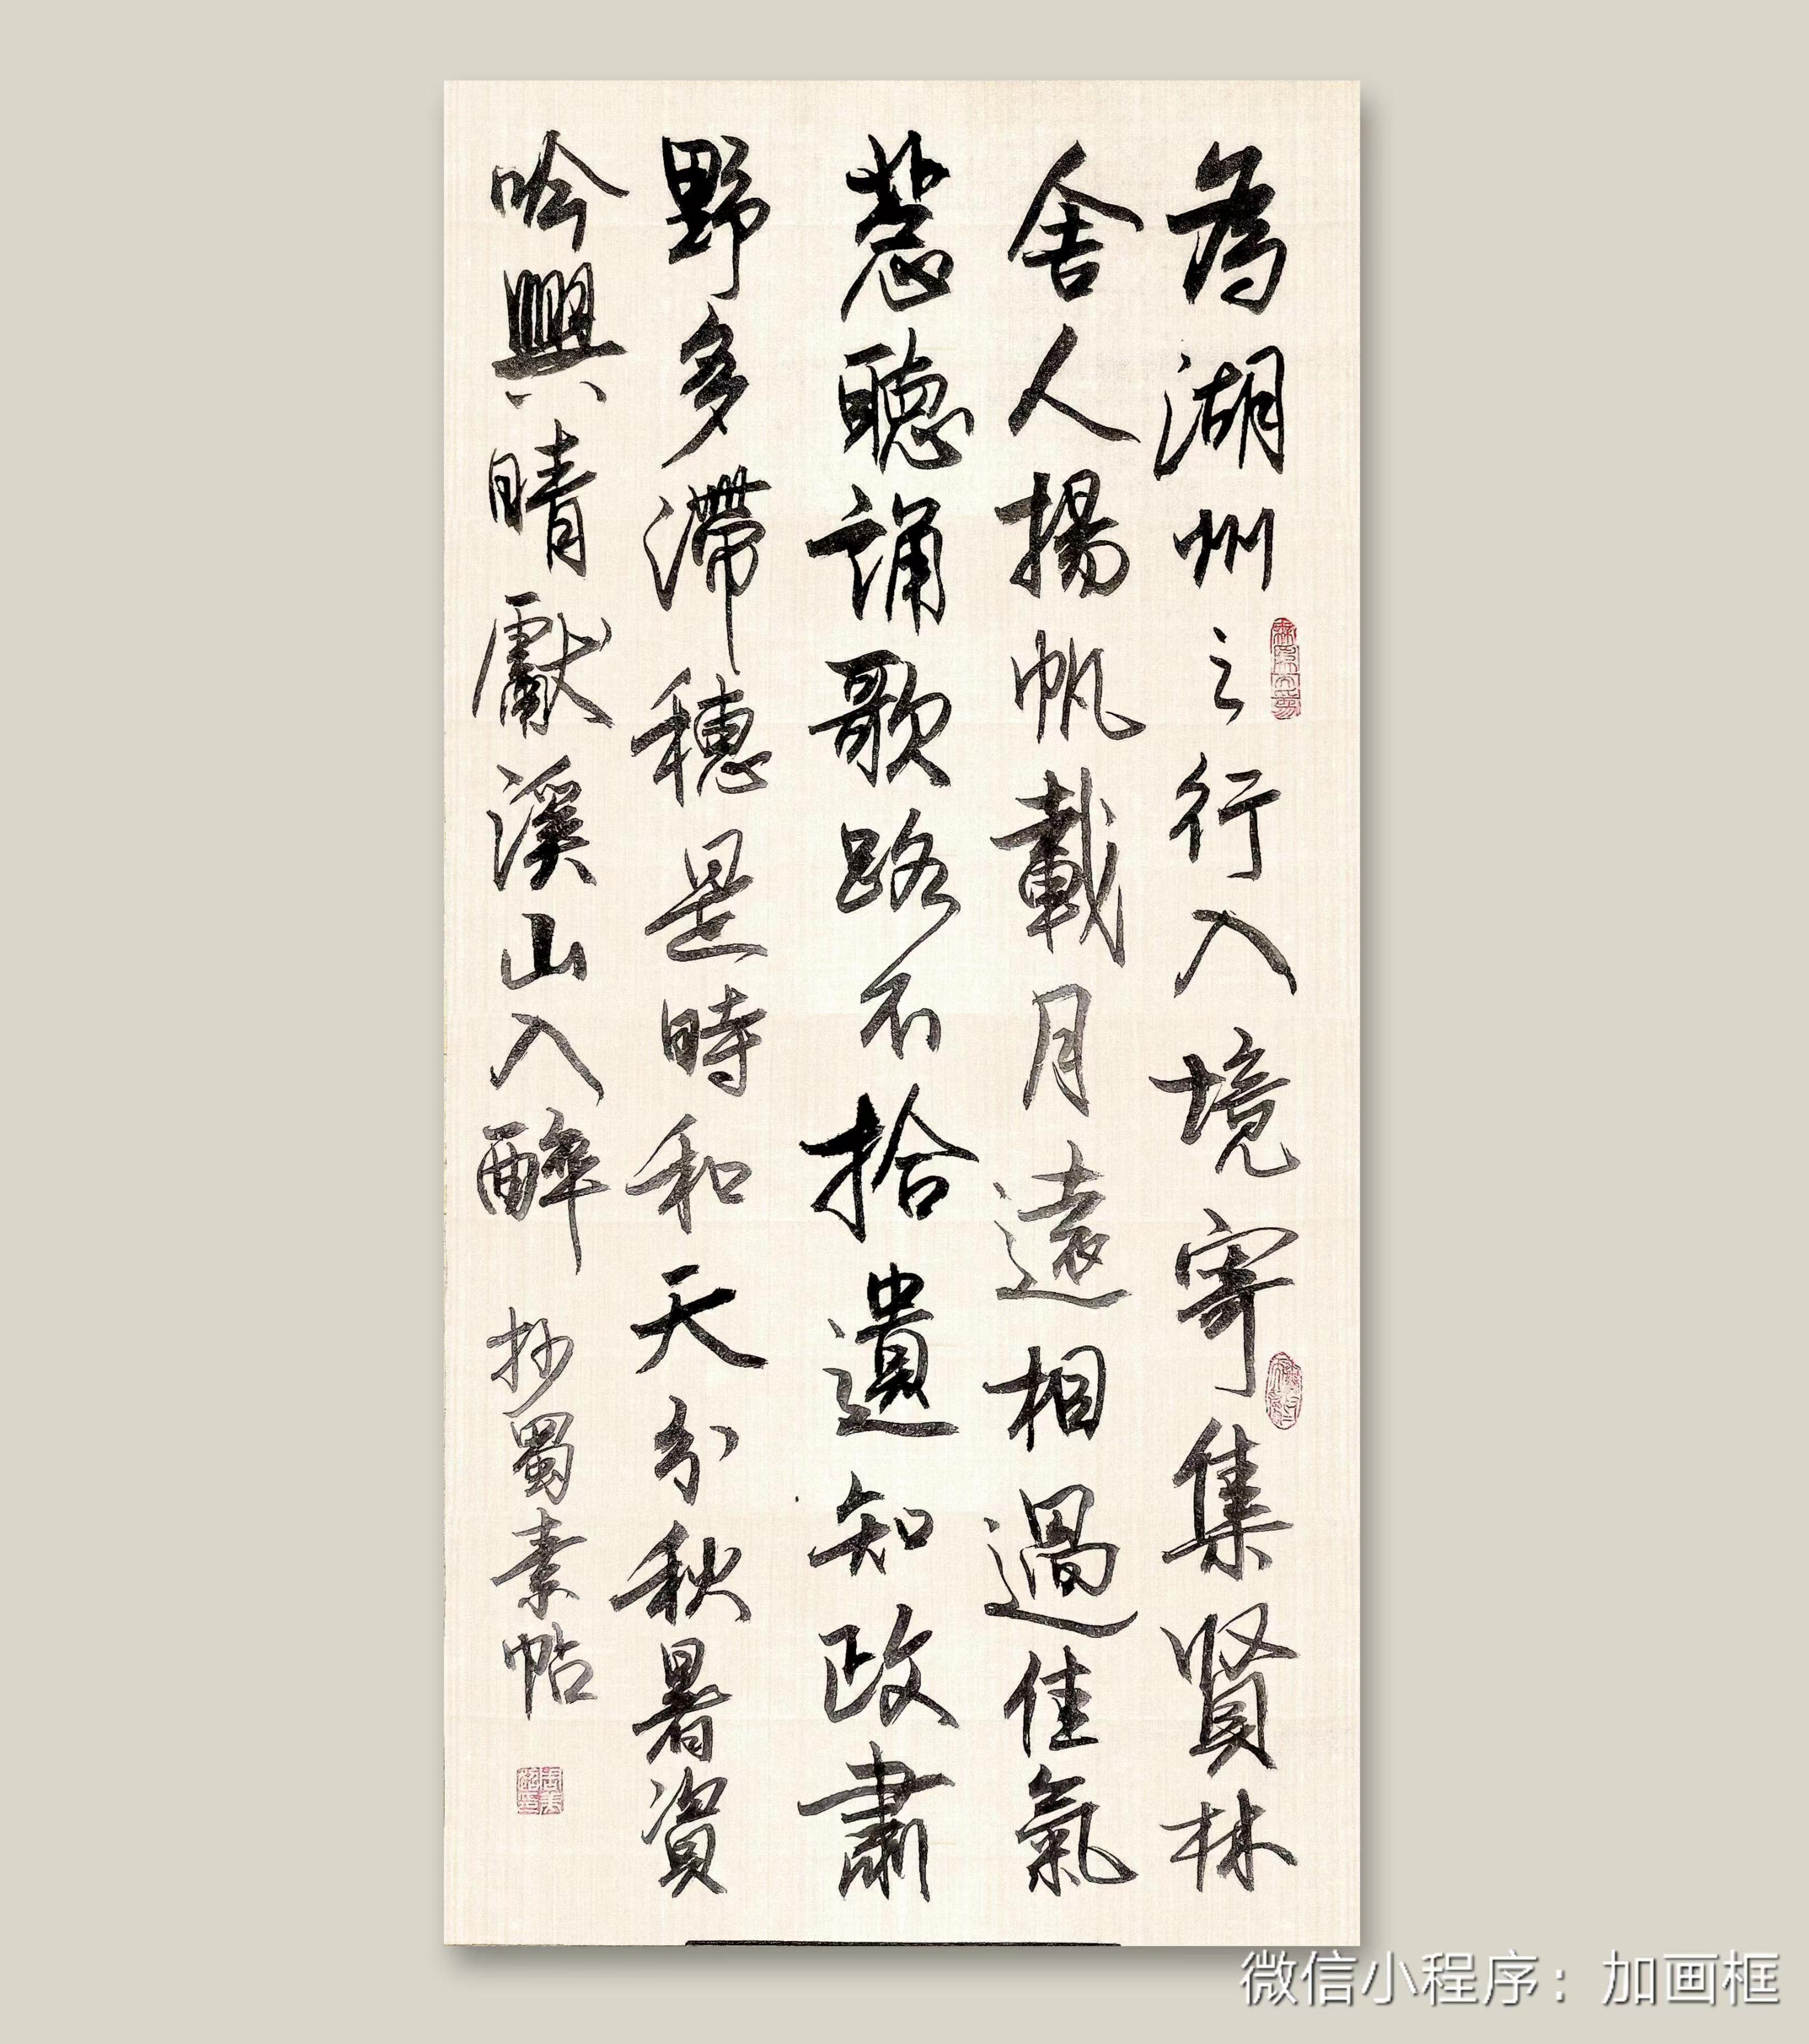 為湖州之行入境寄集賢林
舍人揚帆載月遠相過佳氣
蔥聽誦歌路不拾遺知政肅
野多滯穗是時和天分秋暑資
吟興晴獻溪山入醉
抄蜀素帖
微信小程序：加画框